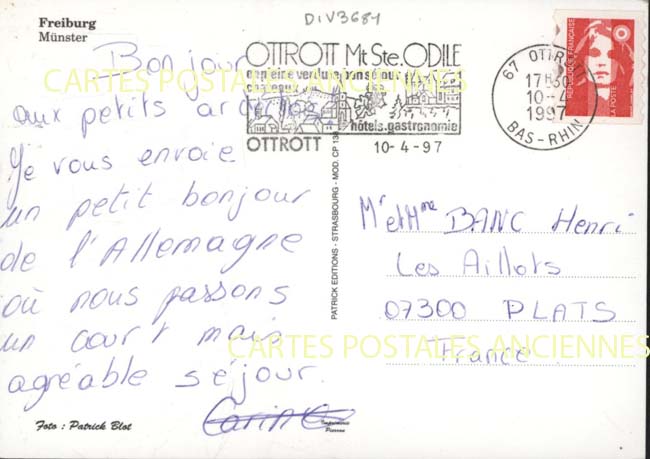 DIV3681
Freiburg
Münster
Bonjour
aux petits
Je vous envoie
un petit bonjour
de l'Allemagne
où nous passons
un court mais
agréable séjour.
Foto : Patrick Blot
Imprimerie
Pierron
PATRICK EDITIONS - STRASBOURG - MOD. CP 13
OTTROTT Mt Ste. ODILE
en pleine verdure bon séjour
châteaux
hôtels.gastronomie
OTTROTT
10-4-97
67 OTTROTT
17H30
10-4
1997
BAS-RHIN
REPUBLIQUE FRANÇAISE
LA POSTE
Mr et Mme BANC Henri
Les Aillots
07300 PLATS
France
CARTES POSTALES ANCIENNES
CARTES POSTALES ANCIENNES